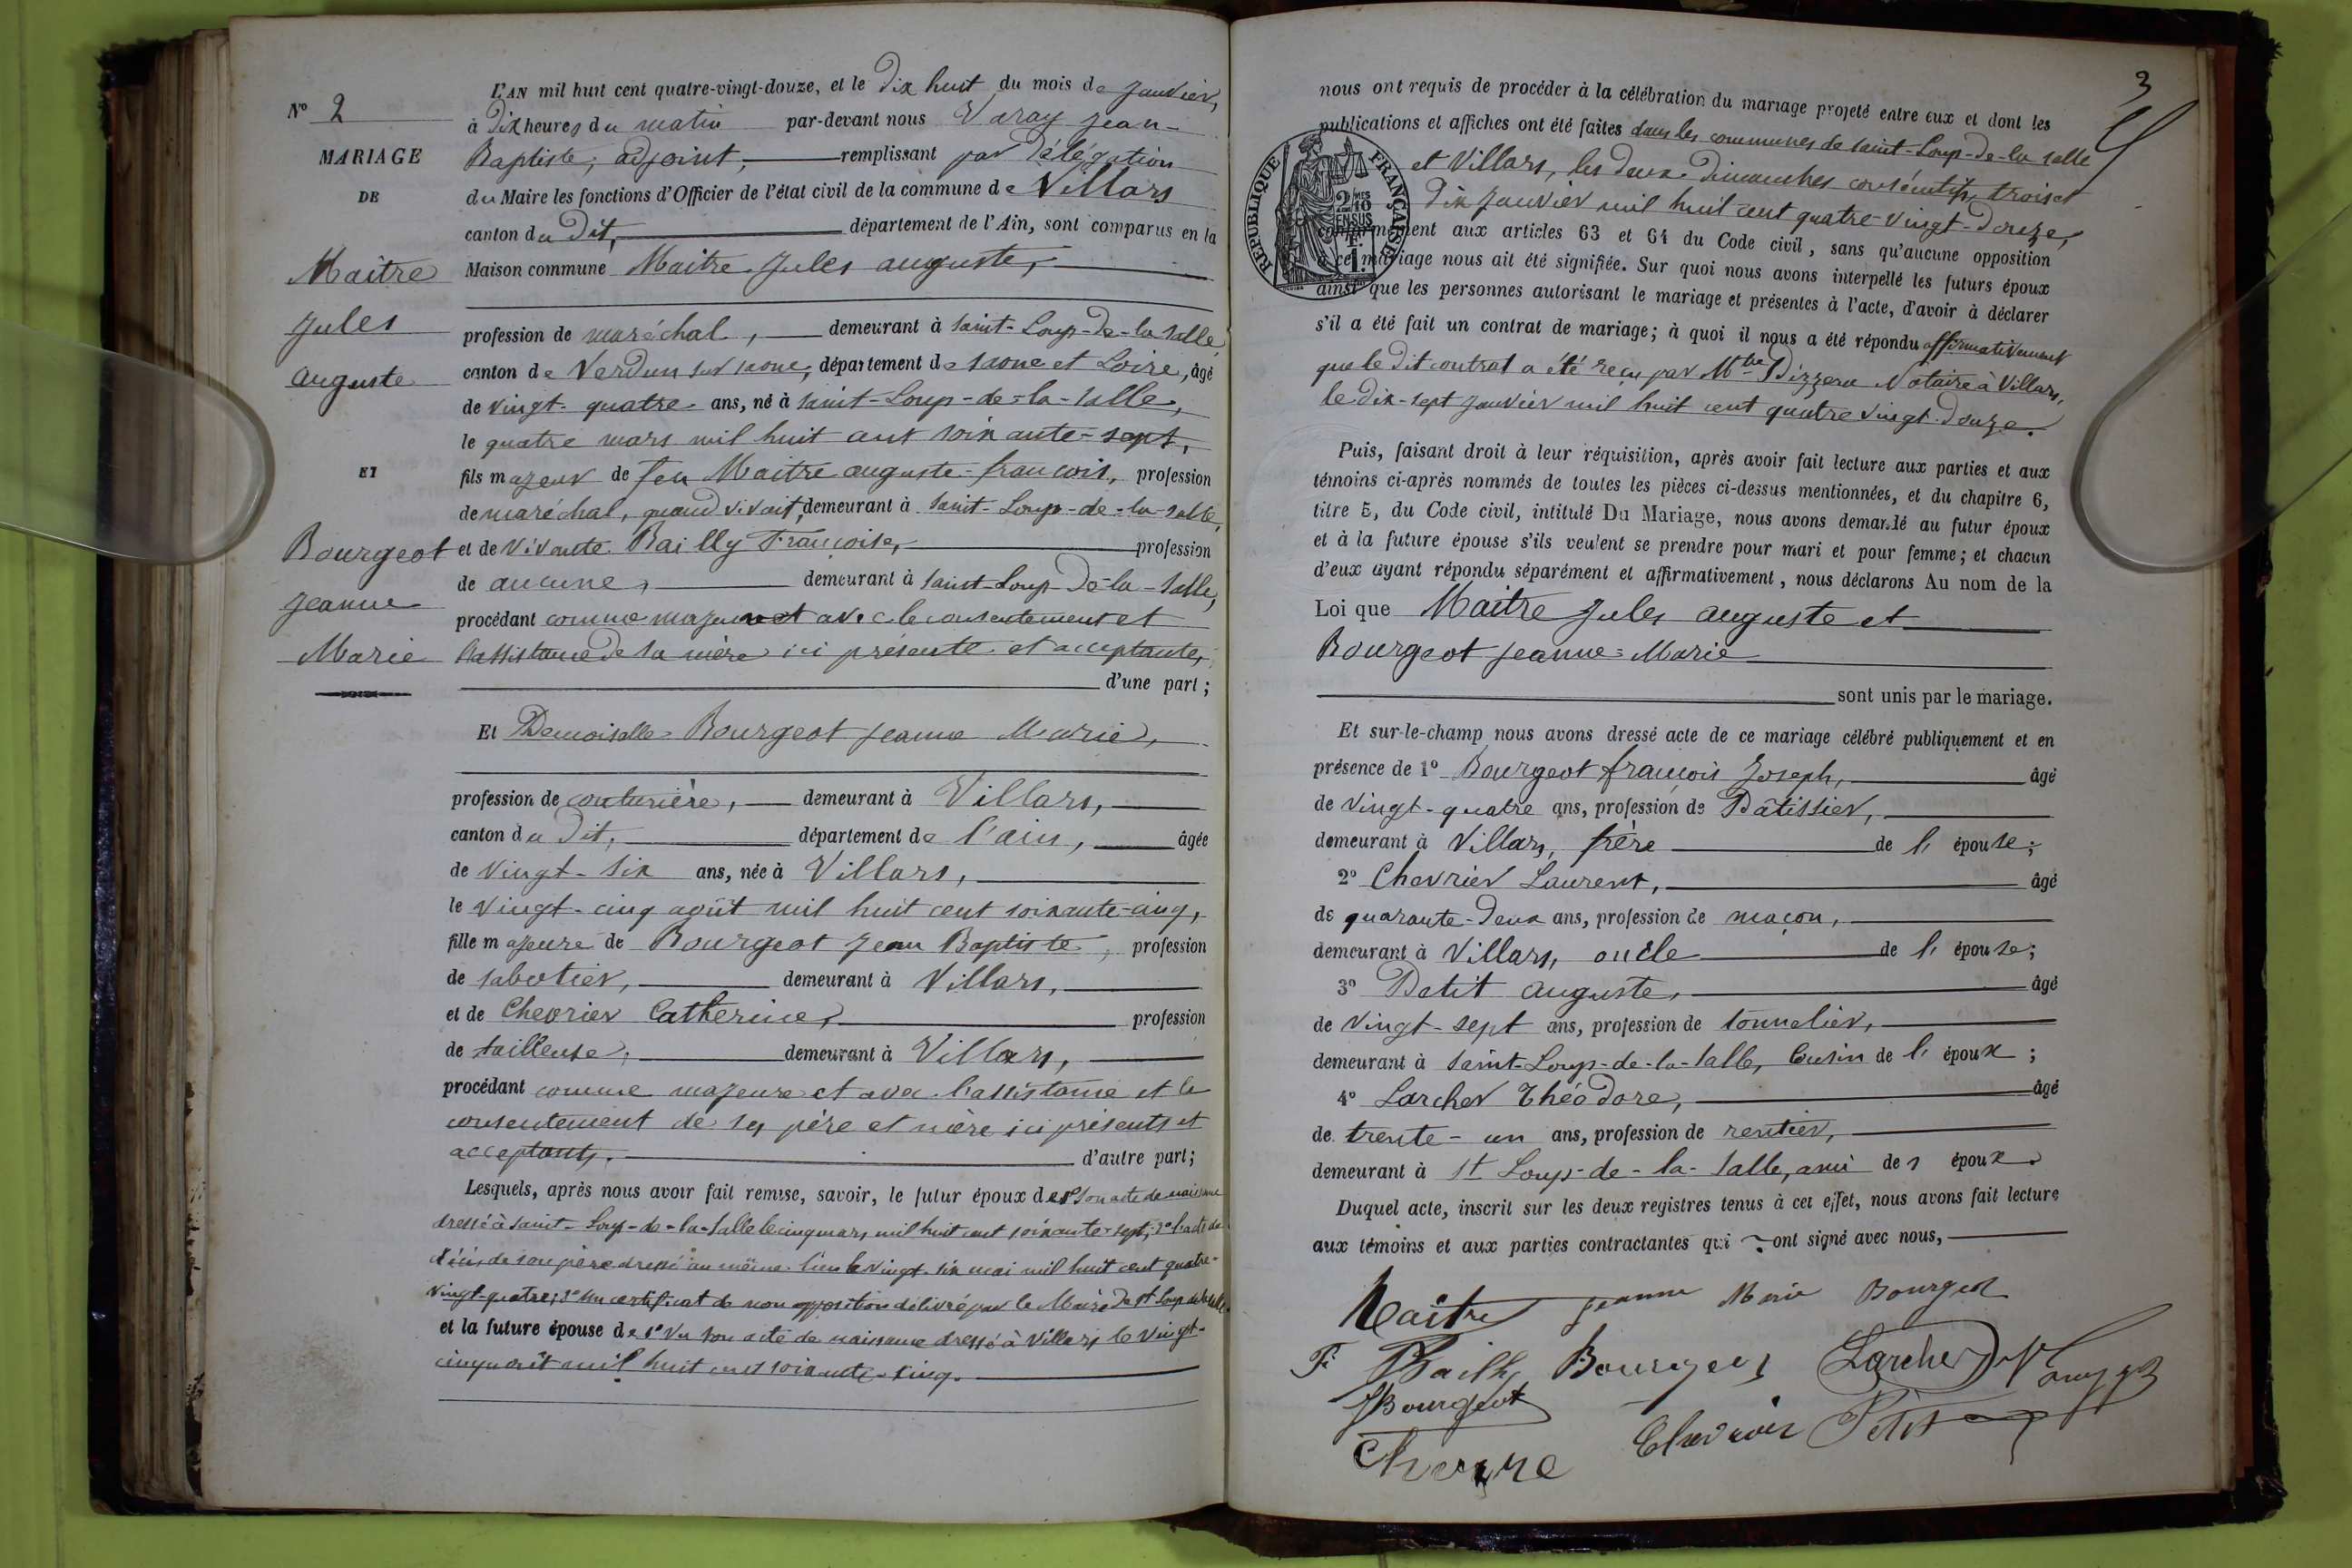 N° 2
MARIAGE
DE
Maître
Jules
auguste
ET
Bourgeot
Jeanne
Marie
L'AN mil huit cent quatre-vingt-douze, et le Dix huit du mois de Janvier,
à Dix heures du matin par-devant nous Varay Jean-
Baptiste, adjoint, remplissant par Délégation
du Maire les fonctions d'Officier de l'état civil de la commune de Villars
canton du Dit, département de l'Ain, sont comparus en la
Maison commune Maitre Jules auguste,
profession de maréchal, demeurant à Saint-Loup-De-la Salle,
canton de Verdun sur saone, département de saone et Loire, âgé
de vingt-quatre ans, né à Saint-Loup-de-la-Salle,
le quatre mars mil huit cent soixante-sept,
fils majeur de feu Maitre auguste-francois, profession
de maréchal, quand vivait, demeurant à Saint-Loup-de-la-Salle,
et de vivante Bailly Françoise, profession
de aucune, demeurant à Saint-Loup-De-la-Salle,
procédant comme majeur et avec le consentement et
l'assistance de sa mère ici présente et acceptante,
d'une part;
Et Demoiselle Bourgeot Jeanne Marie,
profession de couturière, demeurant à Villars,
canton du Dit, département de l'ain, âgée
de vingt-six ans, née à Villars,
le vingt-cinq août mil huit cent soixante-cinq,
fille majeure de Bourgeot Jean Baptiste, profession
de sabotier, demeurant à Villars,
et de Chevrier Catherine, profession
de tailleuse, demeurant à Villars,
procédant comme majeure et avec l'assistance et le
consentement de ses père et mère ici présents et
acceptants. d'autre part;
Lesquels, après nous avoir fait remise, savoir, le futur époux de 1° son acte de naissance
dressé à Saint-Loup-de-la-Salle le cinq mars mil huit cent soixante-sept; 2° l'acte de
décès de son père dressé au même lieu le vingt-six mai mil huit cent quatre-
vingt-quatre; 3° un certificat de non opposition délivré par le Maire de St Loup de la Salle.
et la future épouse de 1° Vu son acte de naissance dressé à Villars le vingt-
cinq août mil huit cent soixante-cinq.
3
nous ont requis de procéder à la célébration du mariage projeté entre eux et dont les
publications et affiches ont été faites dans les communes de Saint-Loup-De-la salle
et Villars, les deux Dimanches consécutifs, trois et
Dix Janvier mil huit cent quatre-vingt-Douze,
conformément aux articles 63 et 64 du Code civil, sans qu'aucune opposition
à ce mariage nous ait été signifiée. Sur quoi nous avons interpellé les futurs époux
ainsi que les personnes autorisant le mariage et présentes à l'acte, d'avoir à déclarer
s'il a été fait un contrat de mariage; à quoi il nous a été répondu affirmativement
que le dit contrat a été reçu par Mtre Dizzera Notaire à Villars,
le dix-sept Janvier mil huit cent quatre vingt Douze.
RÉPUBLIQUE FRANÇAISE
2/10
EN SUS
1F.
Puis, faisant droit à leur réquisition, après avoir fait lecture aux parties et aux
témoins ci-après nommés de toutes les pièces ci-dessus mentionnées, et du chapitre 6,
titre 5, du Code civil, intitulé Du Mariage, nous avons demandé au futur époux
et à la future épouse s'ils veulent se prendre pour mari et pour femme; et chacun
d'eux ayant répondu séparément et affirmativement, nous déclarons Au nom de la
Loi que Maitre Jules auguste et
Bourgeot Jeanne-Marie
sont unis par le mariage.
Et sur-le-champ nous avons dressé acte de ce mariage célébré publiquement et en
présence de 1° Bourgeot françois Joseph, âgé
de vingt-quatre ans, profession de Pâtissier,
demeurant à Villars, frère de l'épouse;
2° Chevrier Laurent, âgé
de quarante-Deux ans, profession de maçon,
demeurant à Villars, oncle de l'épouse;
3° Petit auguste, âgé
de vingt-sept ans, profession de tonnelier,
demeurant à Saint-Loup-de-la-Salle, Cousin de l'époux;
4° Larcher Théodore, âgé
de trente-un ans, profession de rentier,
demeurant à St Loup-de-la-Salle, ami des époux.
Duquel acte, inscrit sur les deux registres tenus à cet effet, nous avons fait lecture
aux témoins et aux parties contractantes qui ont signé avec nous,
Maître Jeanne Marie Bourgeot
F. Bailly Bourgeot Larcher
J Bourgeot
Chevrier Petit